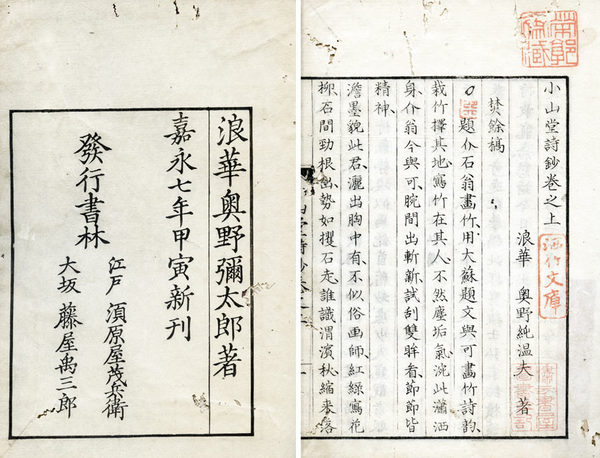 浪華奥野彌太郎著
嘉永七年甲寅新刊
發行書林
江戸 須原屋茂兵衛
大坂 藤屋禹三郎
小山堂詩鈔卷之上
浪華 奥野純温夫 著
洒竹文庫
焚餘稿
題仆石翁畫竹用大蘇題文與可畫竹詩韵
栽竹擇其地寫竹在其人不然塵垢氣浼此瀟洒
身仆翁今與可腕間出斬新試刮雙眸看節節皆
精神
澹墨貌此君灑出胸中有不似俗画師紅緑寫花
柳石間勁根出勢如攫石走誰識渭濱秋縮来落